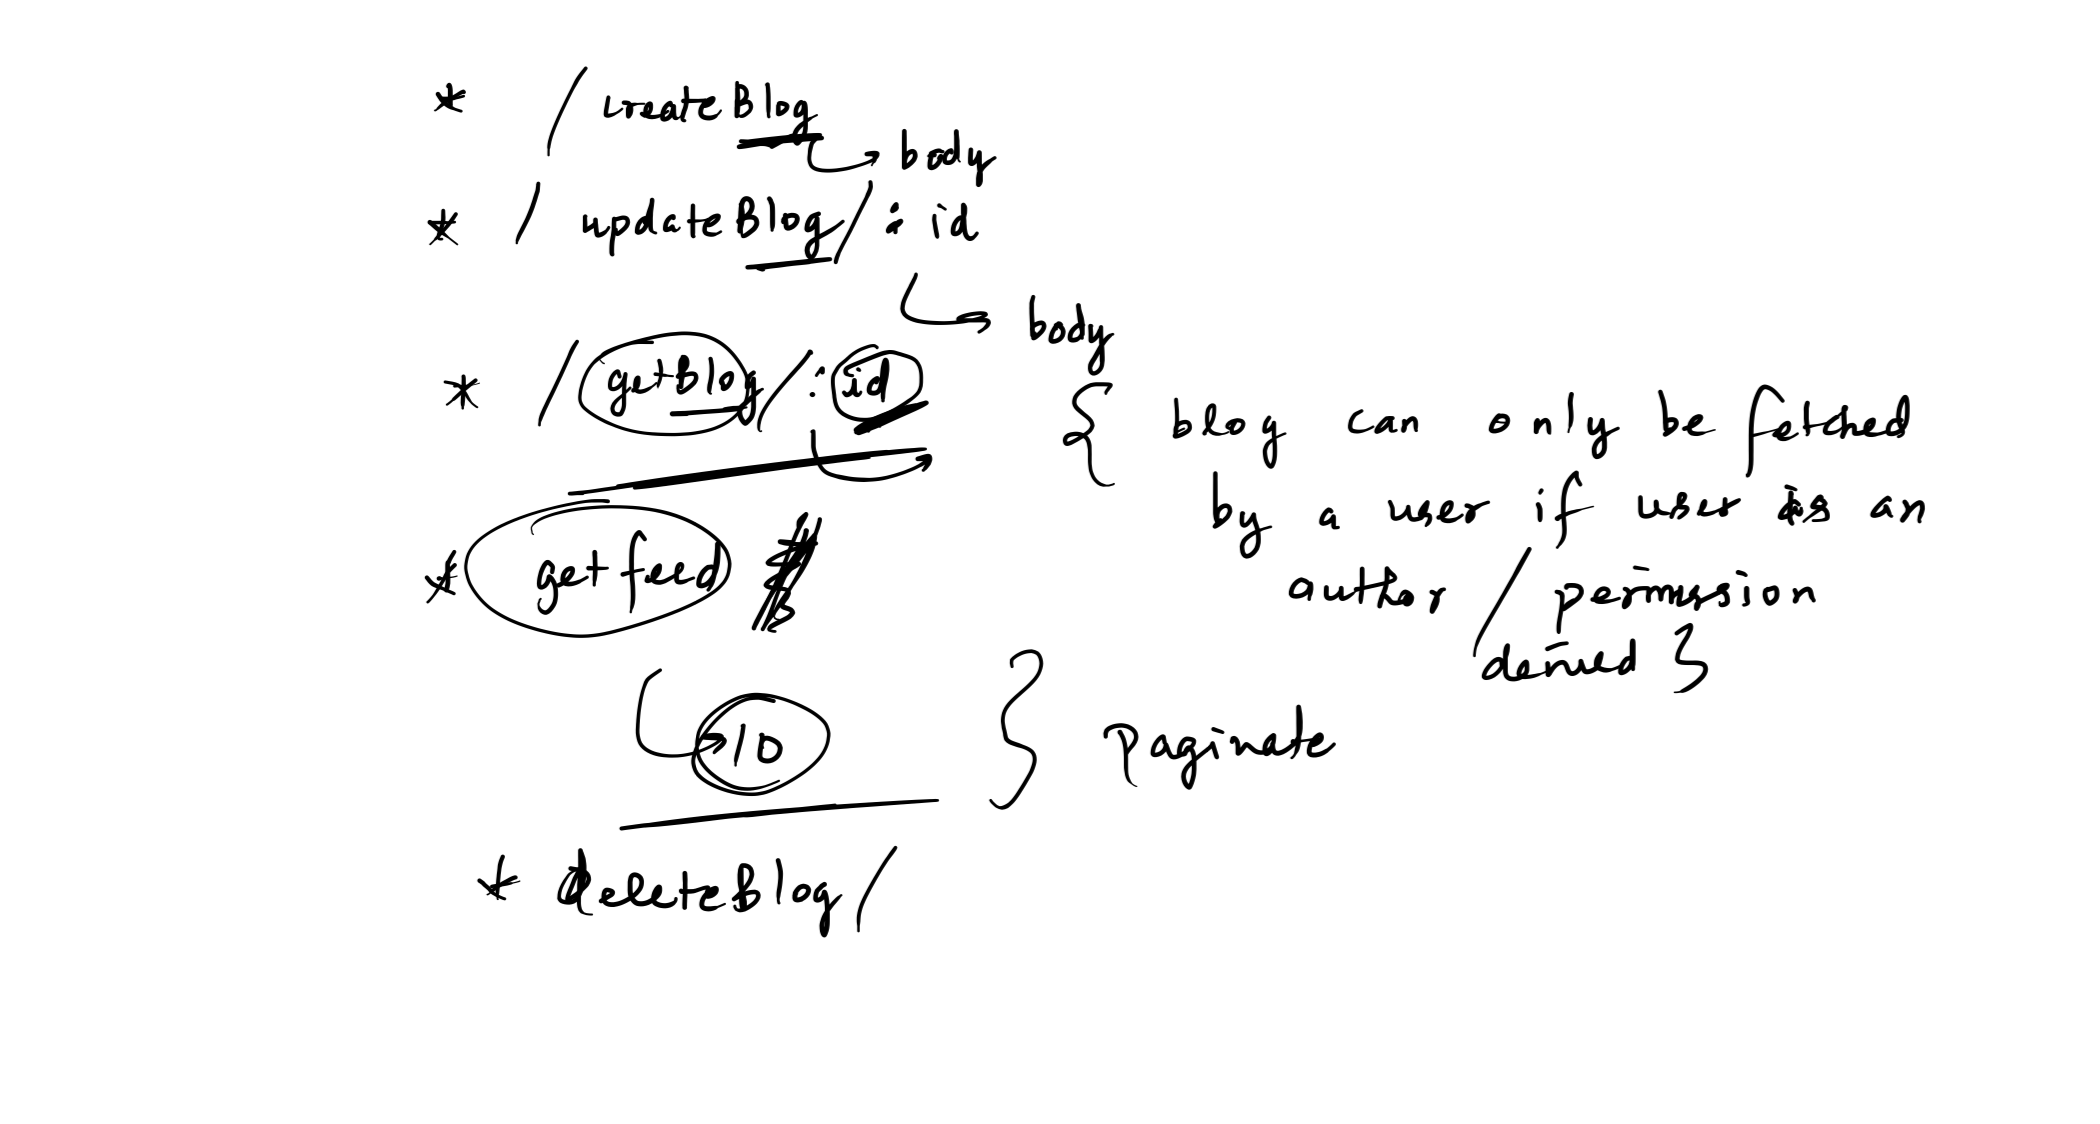 * /createBlog
body
* /updateBlog/:id
body
* /getBlog/:id
{ blog can only be fetched
by a user if user is an
author / permission
denied }
* getfeed
10 } paginate
* deleteBlog/